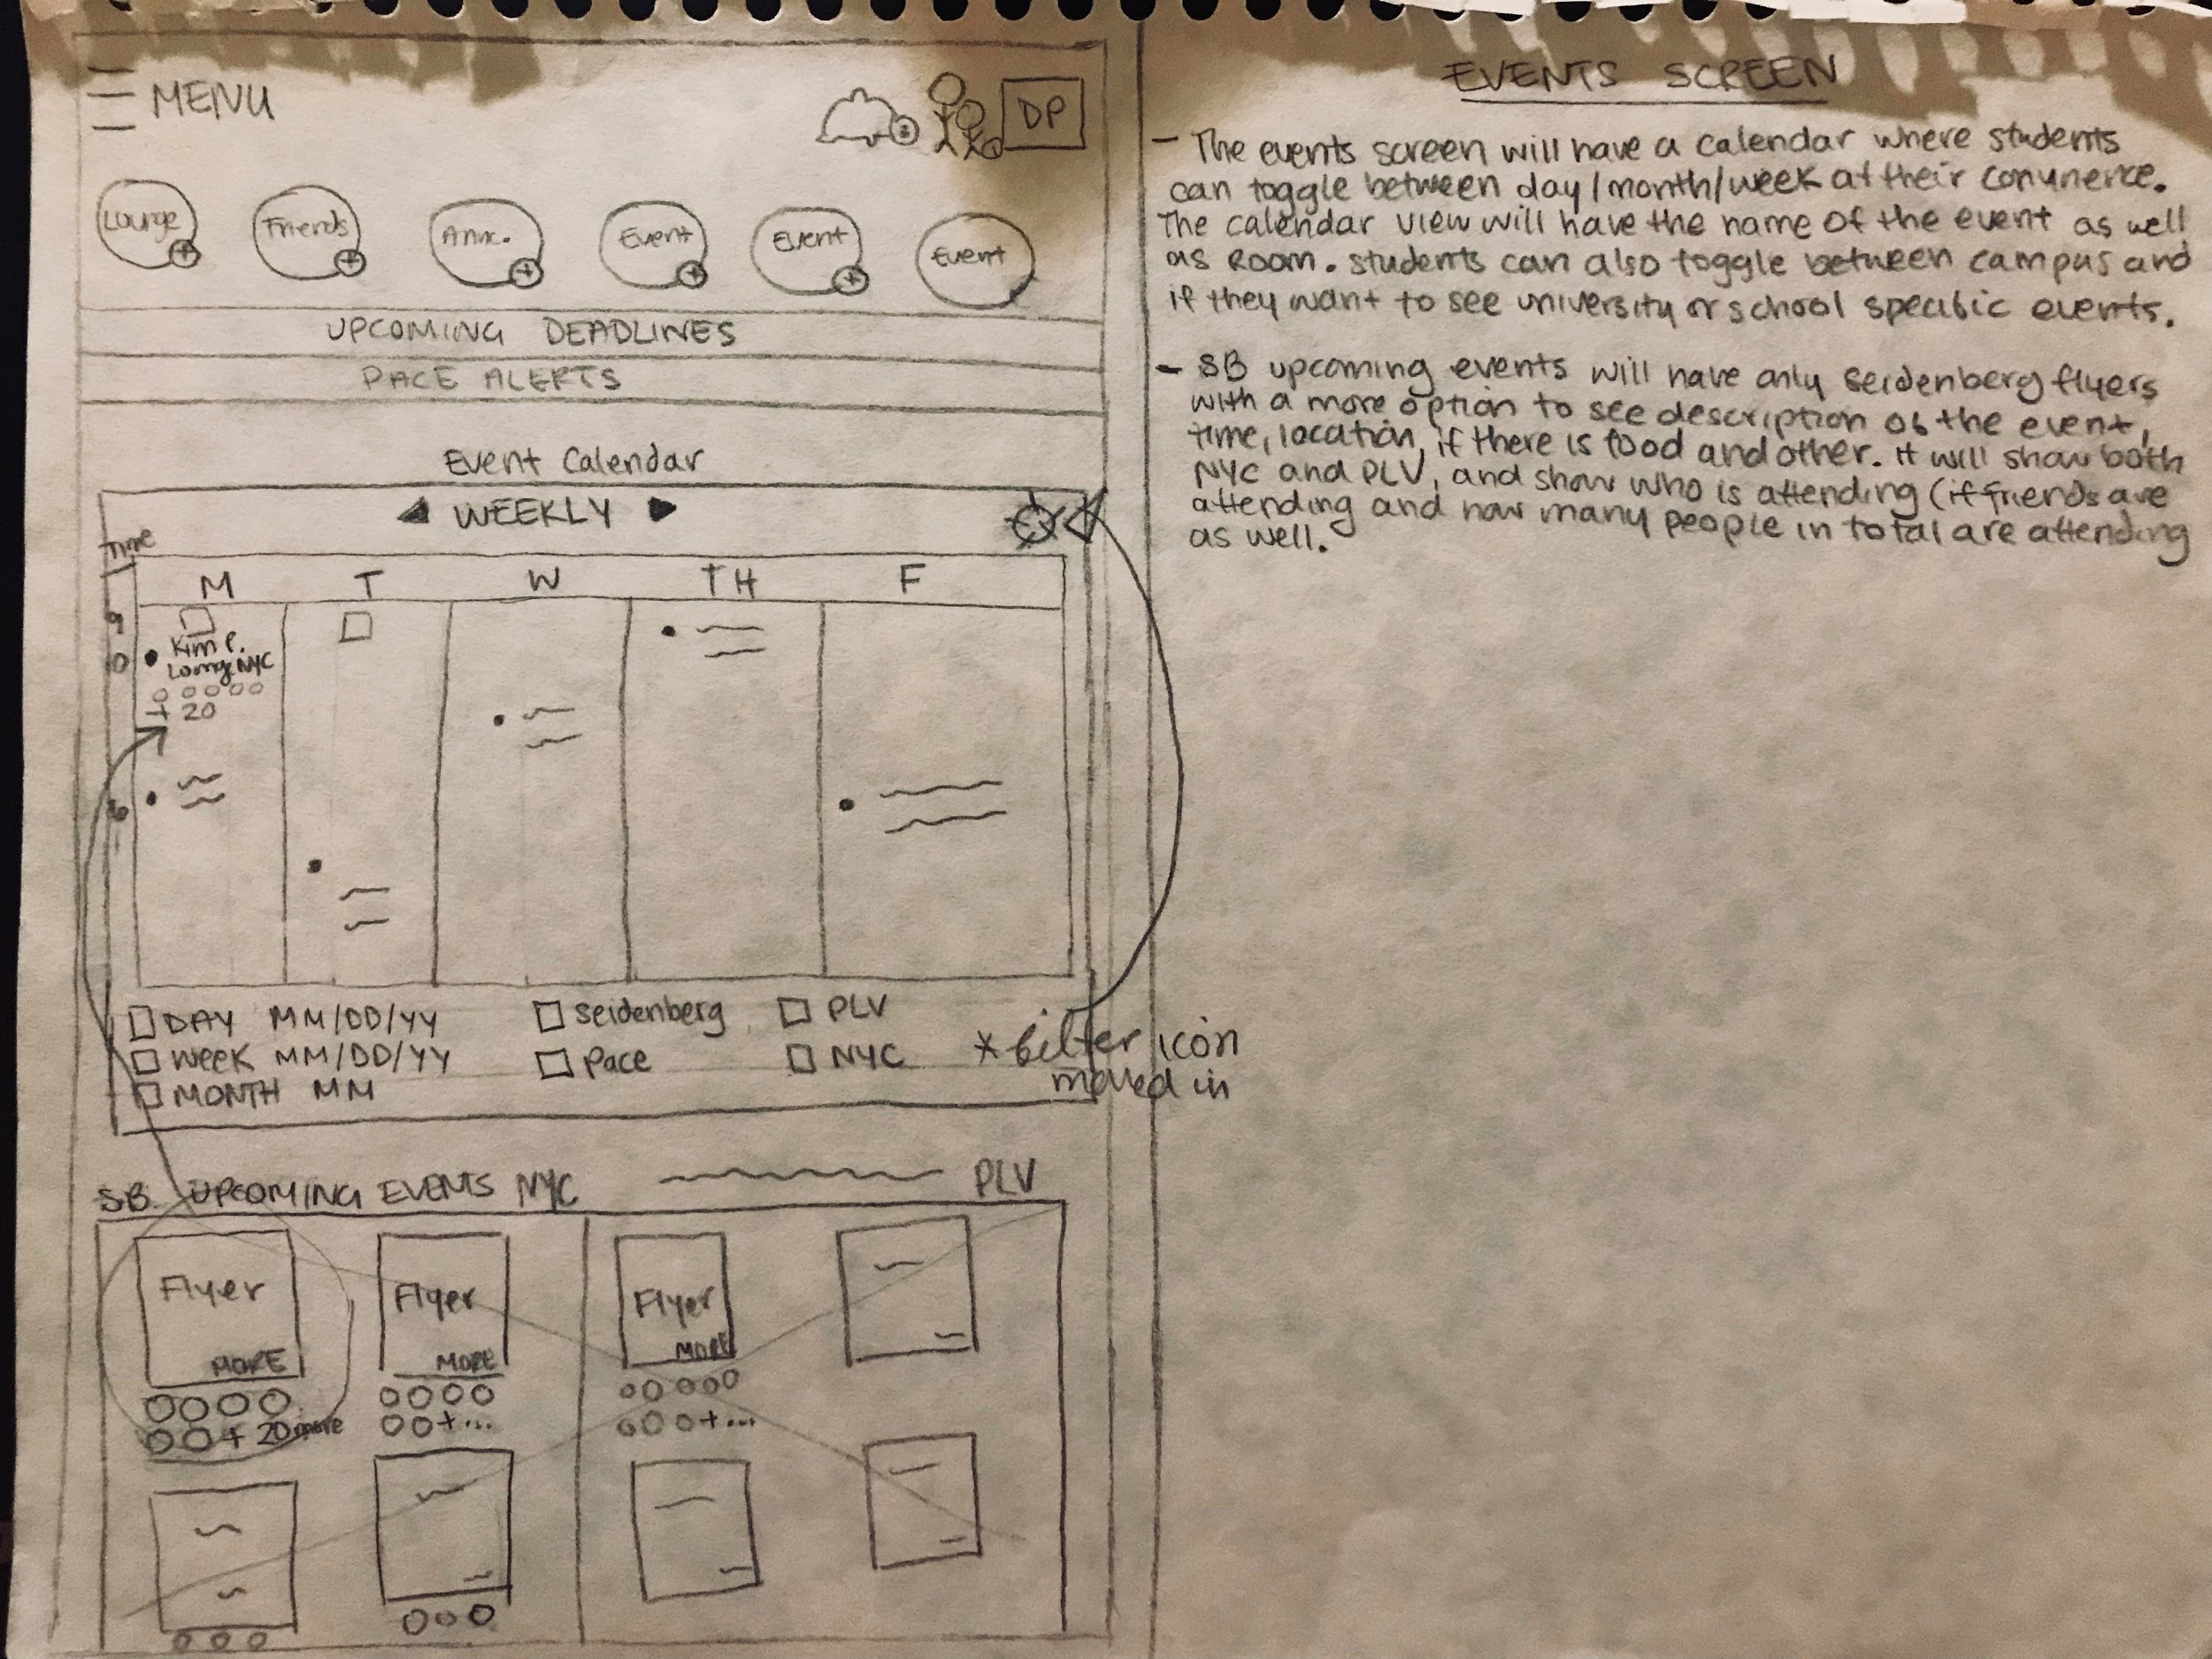 MENU
DP
Lounge
Friends
Ann.
Event
Event
Event
UPCOMING DEADLINES
PACE ALERTS
Event Calendar
WEEKLY
Time
M T W TH F
9
10
Kim P.
Lounge NYC
+ 20
6
DAY MM/DD/YY
Week MM/DD/YY
MONTH MM
Seidenberg
Pace
PLV
NYC
* filter icon
moved in
SB UPCOMING EVENTS NYC
PLV
Flyer
MORE
+ 20 more
Flyer
MORE
+...
Flyer
MORE
+...
EVENTS SCREEN
- The events screen will have a calendar where students
can toggle between day/month/week at their convinence.
The calendar view will have the name of the event as well
as Room. Students can also toggle between campus and
if they want to see university or school specific events.
- SB upcoming events will have only Seidenberg flyers
with a more option to see description of the event,
time, location, if there is food and other. It will show both
NYC and PLV, and show who is attending (if friends are
attending and how many people in total are attending
as well.